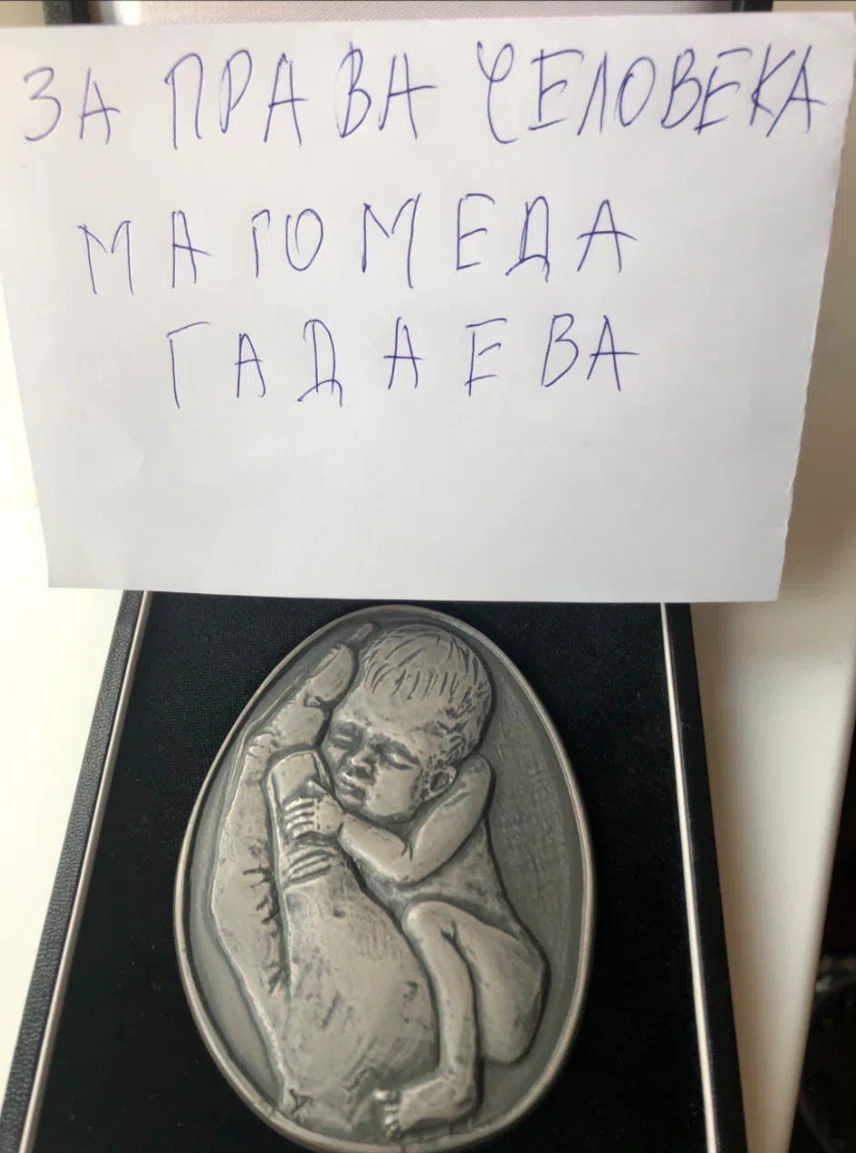 ЗА ПРАВА ЧЕЛОВЕКА
МАГОМЕДА
ГАДАЕВА